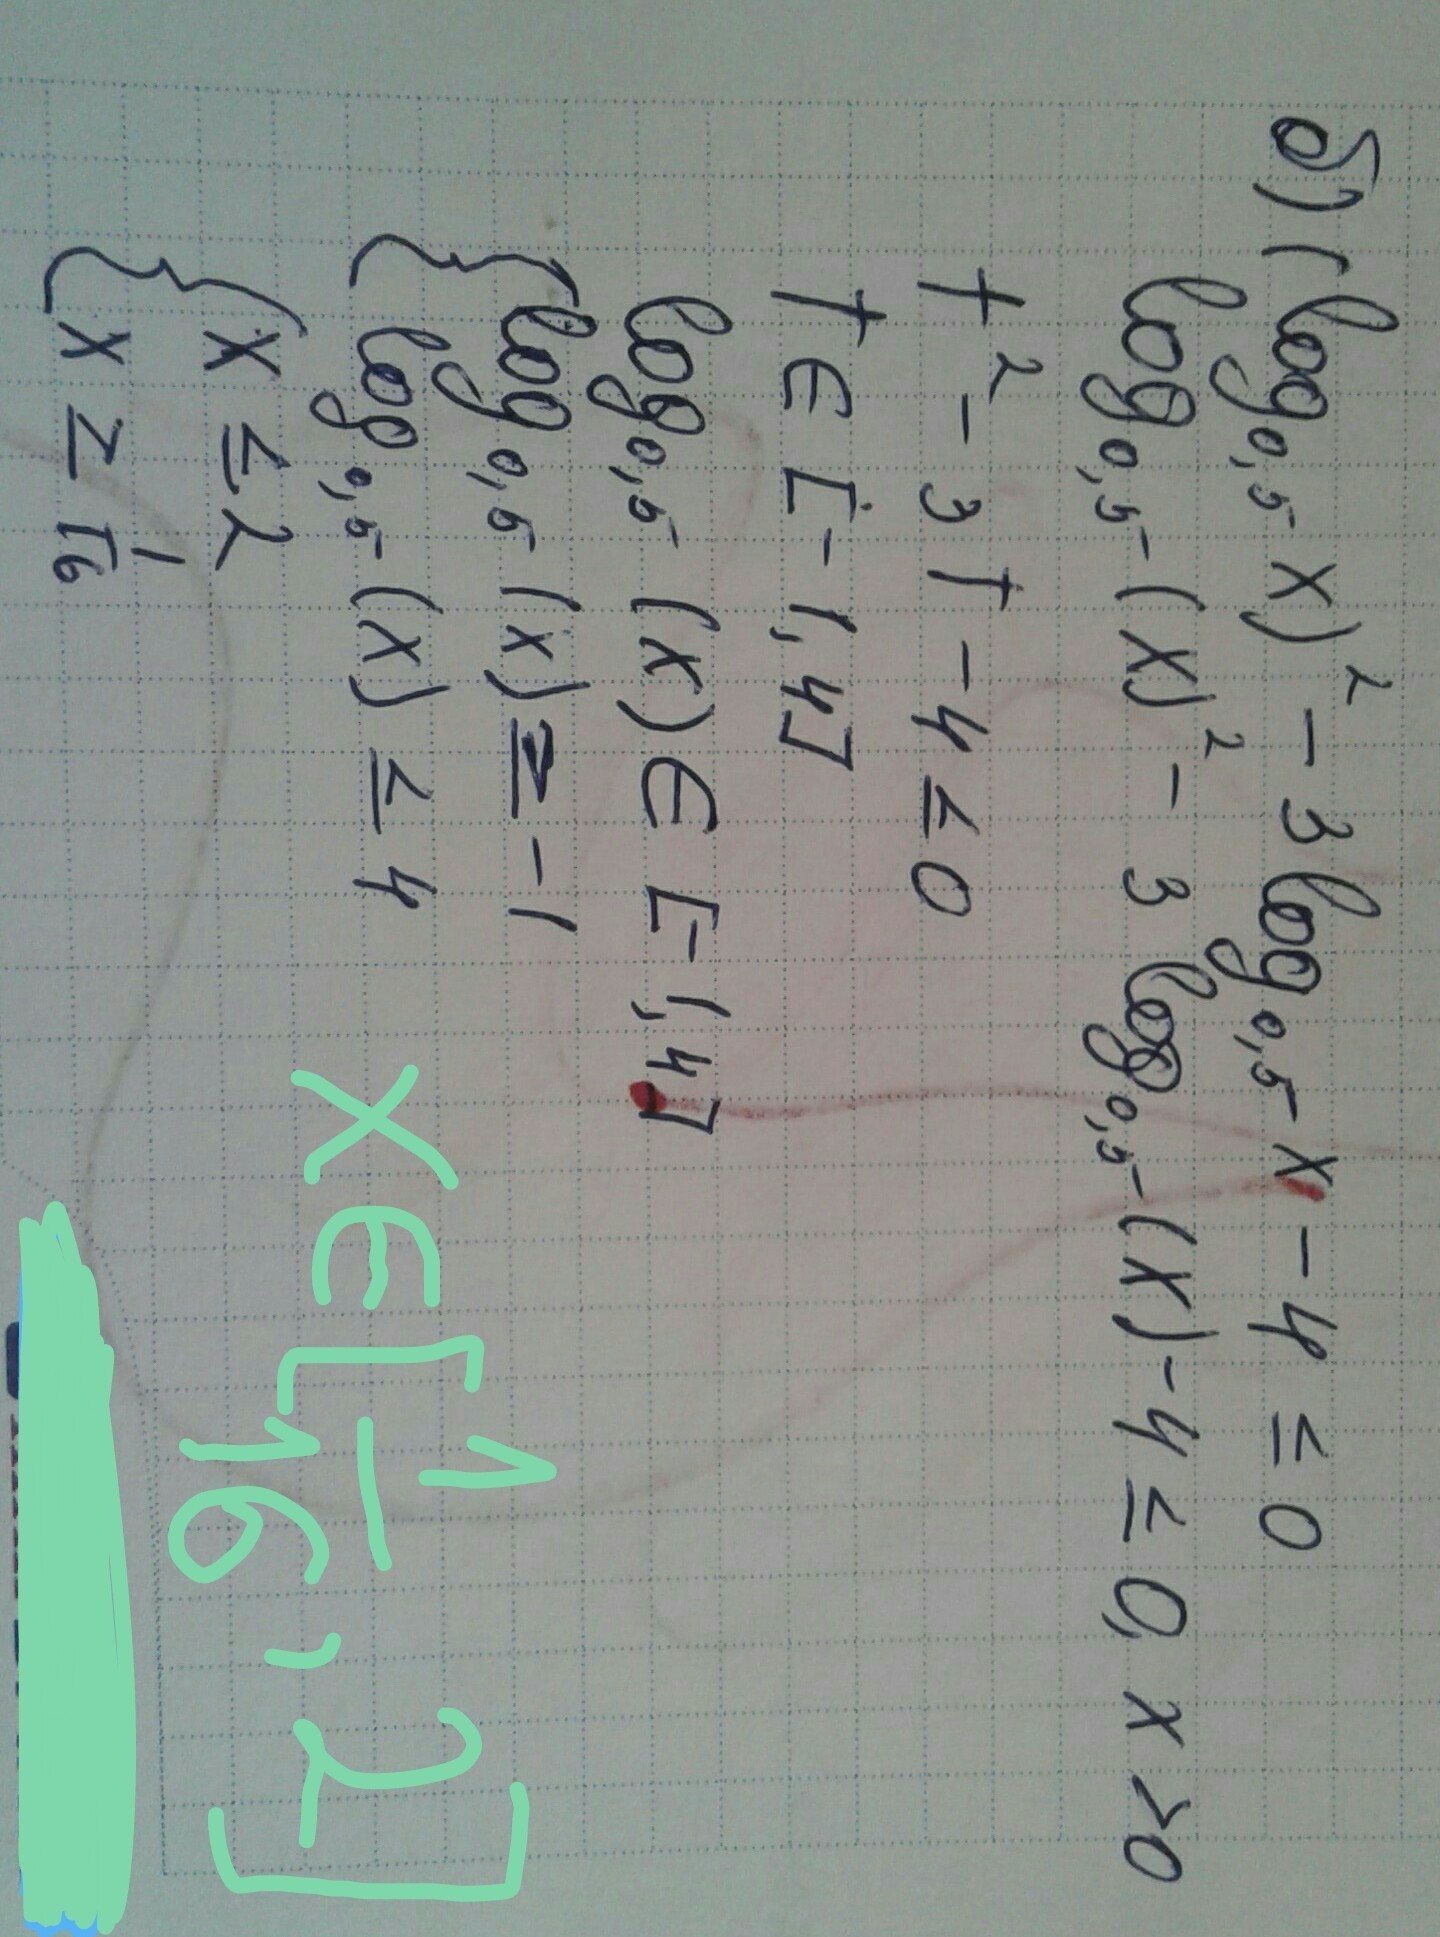 б) (log₀,₅ x)² - 3 log₀,₅ x - 4 ≤ 0
log₀,₅ (x)² - 3 log₀,₅ (x) - 4 ≤ 0, x > 0
t² - 3t - 4 ≤ 0
t ∈ [-1, 4]
log₀,₅ (x) ∈ [-1, 4]
{ log₀,₅ (x) ≥ -1
log₀,₅ (x) ≤ 4
{ x ≤ 2
x ≥ 1/16
x ∈ [1/16, 2]